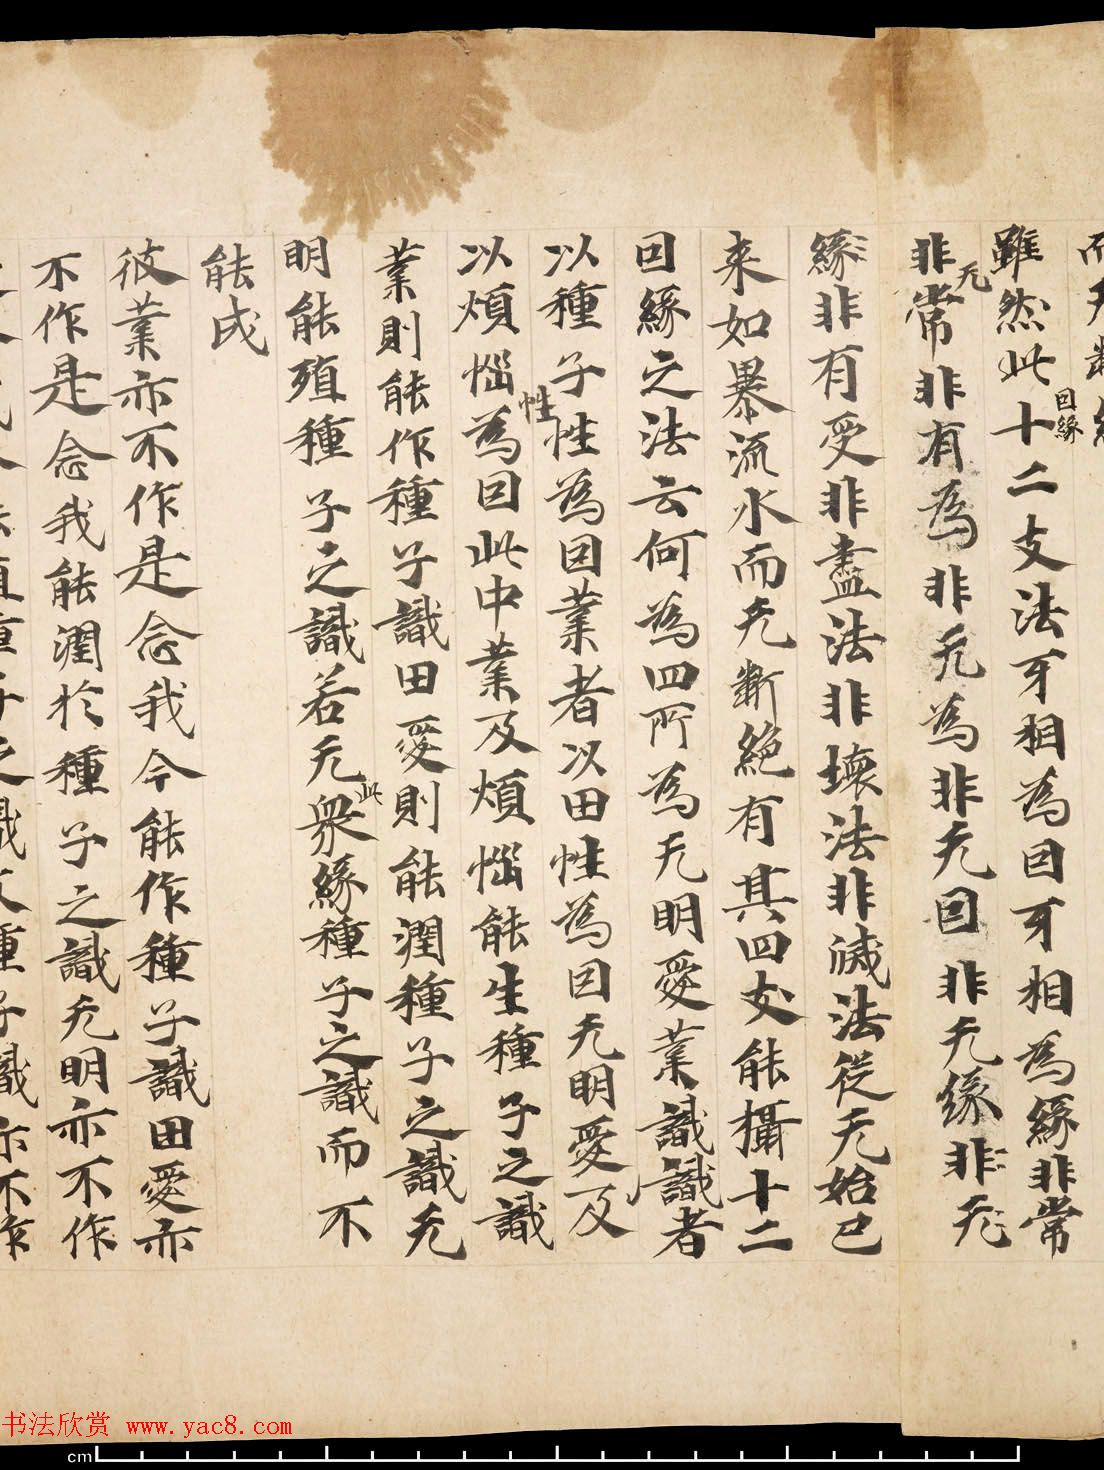 而无斷絕
雖然此十因緣二支法牙相為因牙相為緣非常
非无常非有為非无為非无因非无緣非无
緣非有受非盡法非壞法非滅法從无始已
来如暴流水而无斷絕有其四支能攝十二
因緣之法云何為四所為无明愛業識識者
以種子性為因業者以田性為因无明愛及
以煩惱性為因此中業及煩惱能生種子之識
業則能作種子識田愛則能潤種子之識无
明能殖種子之識若无此衆緣種子之識而不
能成
彼業亦不作是念我今能作種子識田愛亦
不作是念我能潤於種子之識无明亦不作
種子之識彼種子識亦不作
书法欣赏 www.yac8.com
cm